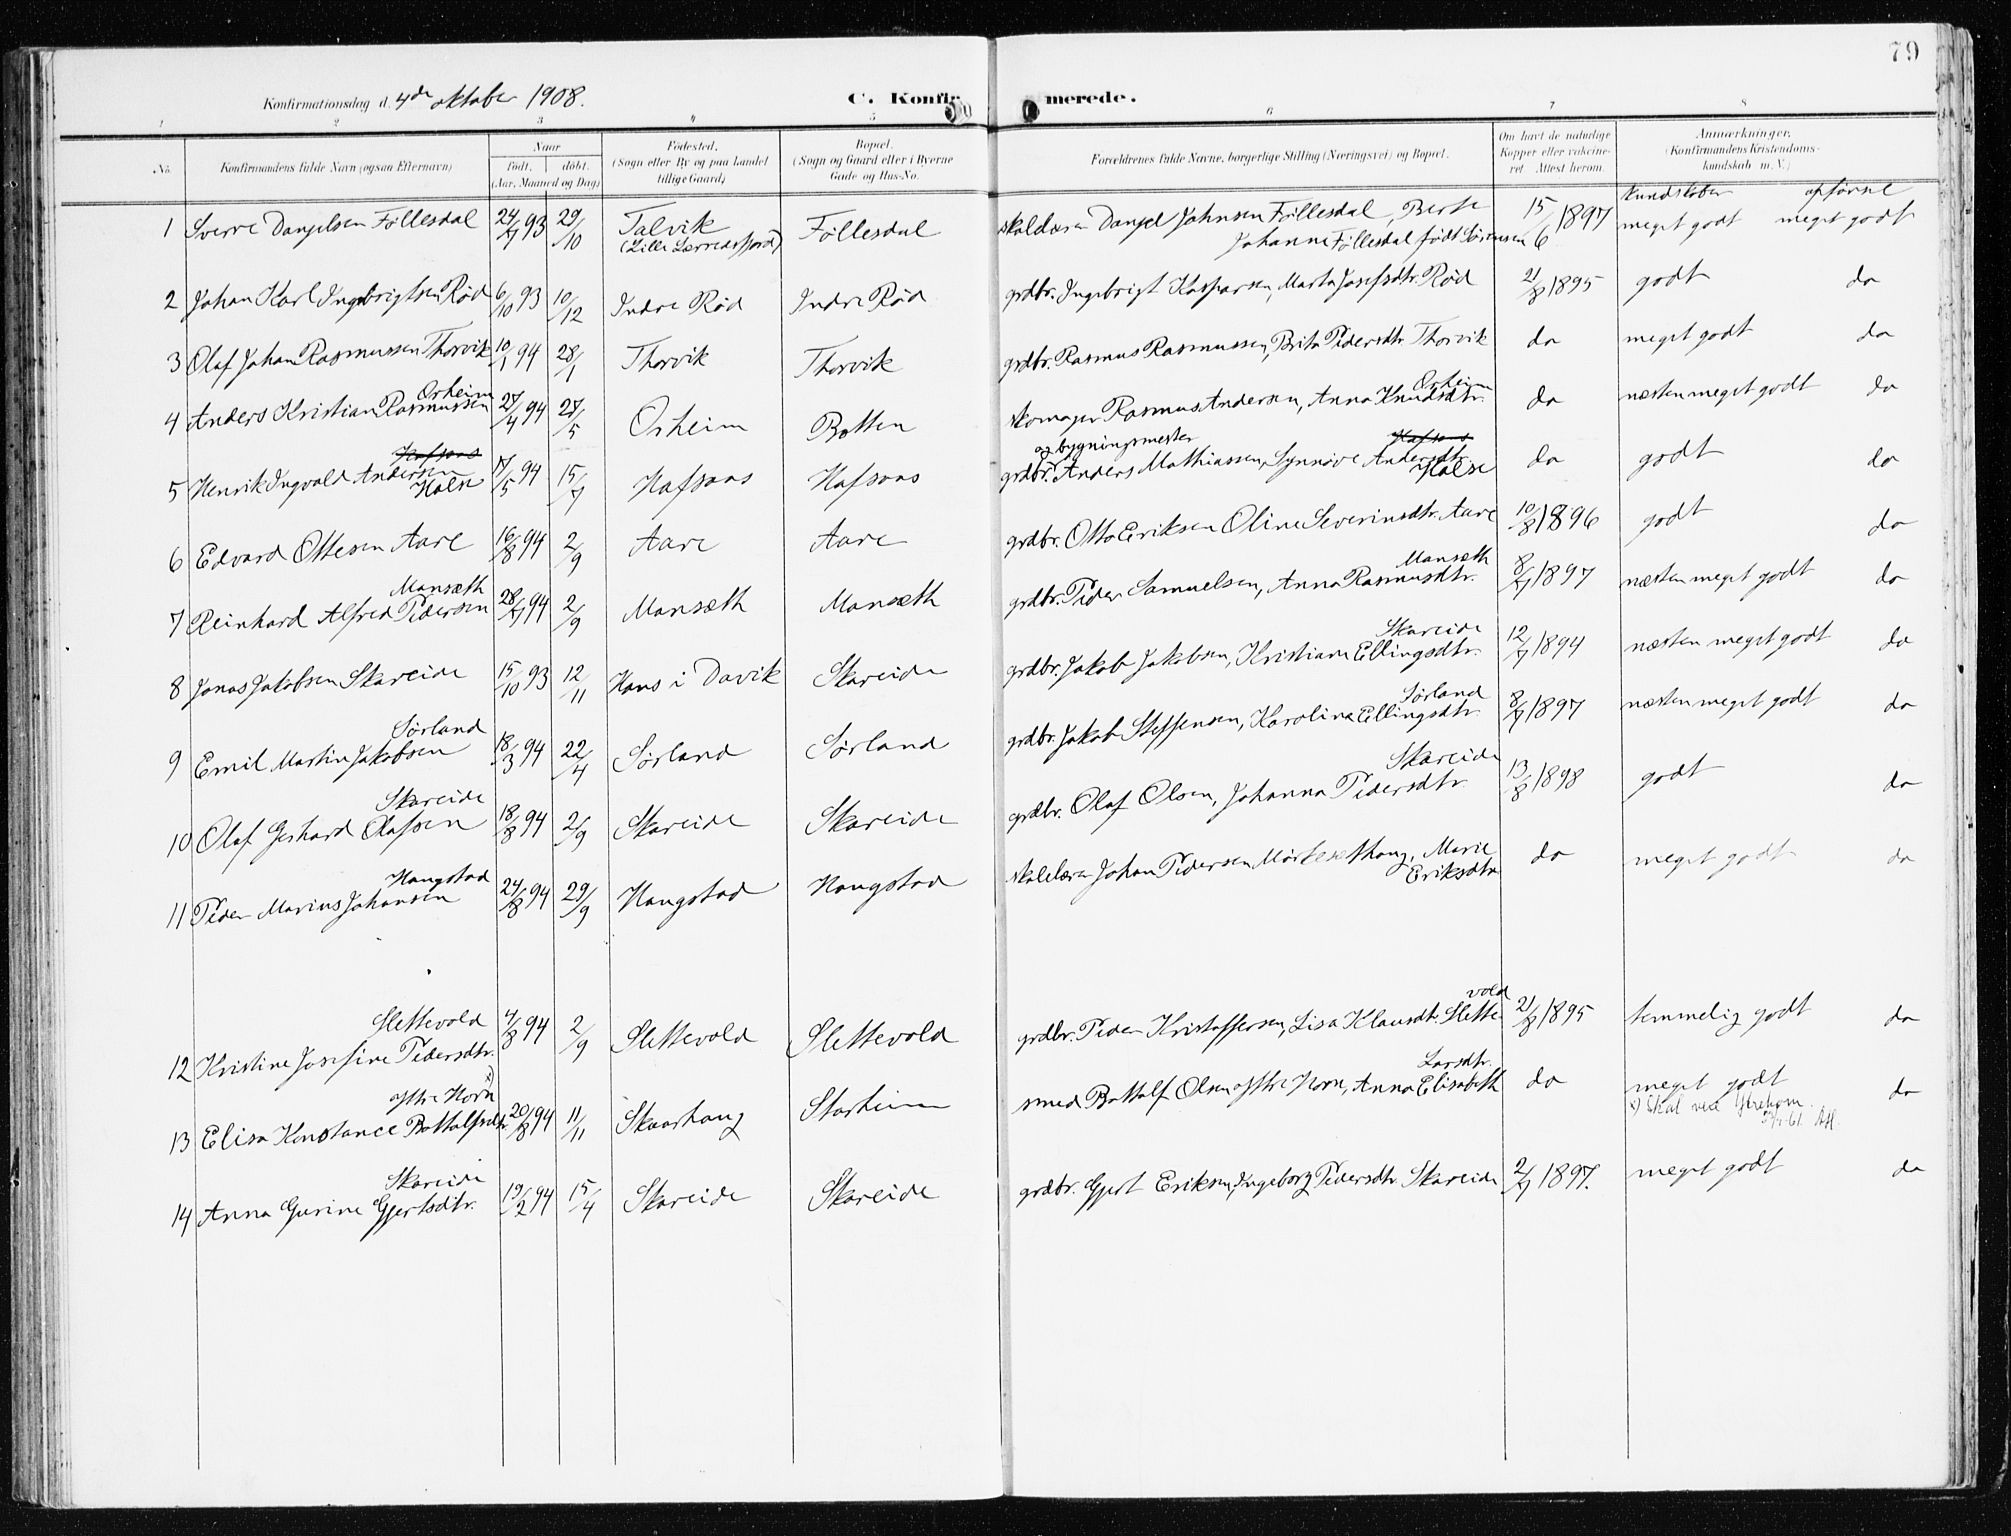 79
Konfirmationsdag d. 4de oktober 1908.
C. Konfir merede.
1 2 3 4 5 6 7 8
No. Konfirmandens fulde Navn (ogsaa Efternavn) Naar født. døbt. (Aar, Maaned og Dag) Fødested. (Sogn eller By og paa Landet tillige Gaard) Bopæl. (Sogn og Gaard eller i Byerne Gade og Hus-No. Forældrenes fulde Navne, borgerlige Stilling (Næringsvei) og Bopæl. Om havt de naturlige Kopper eller vakcineret. Attest herom. Anmærkninger. (Konfirmandens Kristendomskundskab m. V.)
kundskaber opførsel
1 Sverre Danjelsen Føllesdal 24/7 93 29/10 Talvik (Lille Lerredsfjord) Føllesdal skolelærer Danjel Johnsen Føllesdal, Berte Johanne Føllesdal født Sørensen 15/6 1897 meget godt meget godt
2 Johan Karl Ingebrigtsen Rød 6/10 93 10/12 Indre Rød Indre Rød grdbr. Ingebrigt Kasparsen, Marta Josefsdtr. Rød 21/8 1895 godt do
3 Olaf Johan Rasmussen Thorvik 10/1 94 28/1 Thorvik Thorvik grdbr. Rasmus Rasmussen, Brita Pedersdtr. Thorvik do meget godt do
4 Anders Kristian Rasmussen Orheim 27/4 94 27/5 Orheim Botten skomager Rasmus Andersen, Anna Knudsdtr. Orheim do næsten meget godt do
5 Henrik Ingvald Andersen Hafsaas Halse 17/5 94 15/7 Hafsaas Hafsaas grdbr. og bygningsmester Anders Mathiassen, Synnøve Andersdtr. Hafsaas Halse do godt do
6 Edvard Ottesen Aare 16/8 94 2/9 Aare Aare grdbr. Otto Eriksen Oline Severinsdtr. Aare 10/8 1896 godt do
7 Reinhard Alfred Pedersen Mansæth 28/7 94 2/9 Mansæth Mansæth grdbr. Peder Samuelsen, Anna Rasmusdtr. Mansæth 8/7 1897 næsten meget godt do
8 Jonas Jakobsen Skareide 15/10 93 12/11 Hans i Davik Skareide grdbr. Jakob Jakobsen, Kristiane Ellingsdtr. Skareide 12/7 1894 næsten meget godt do
9 Emil Martin Jakobsen Sørland 18/3 94 22/4 Sørland Sørland grdbr. Jakob Steffensen, Karoline Ellingsdtr. Sørland 8/7 1897 næsten meget godt do
10 Olaf Gerhard Olafsen Skareide 18/8 94 2/9 Skareide Skareide grdbr. Olaf Olsen, Johanna Pedersdtr. Skareide 13/8 1898 godt do
11 Peder Marius Johansen Haugstad 24/8 94 29/9 Haugstad Haugstad skolelærer Johan Pedersen Mørkesethaug, Marie Eriksdtr do meget godt do
12 Kristine Josefine Pedersdtr. Slettevold 4/8 94 2/9 Slettevold Slettevold grdbr. Peder Kristoffersen, Lisa Klausdtr. Slettevold 21/8 1895 temmelig godt do
13 Elisa Konstance Bottolfsdtr. østre Horn x) 20/8 94 11/11 Skaarhaug Starheim smed Bottolf Olsen østre Horn, Anna Elisabeth Larsdtr. do meget godt do
x) Skal være Ytrehorn.
14 Anna Gurine Gjertsdtr. Skareide 19/2 94 15/4 Skareide Skareide grdbr. Gjert Eriksen, Ingeborg Pedersdtr. Skareide 2/7 1897. meget godt do